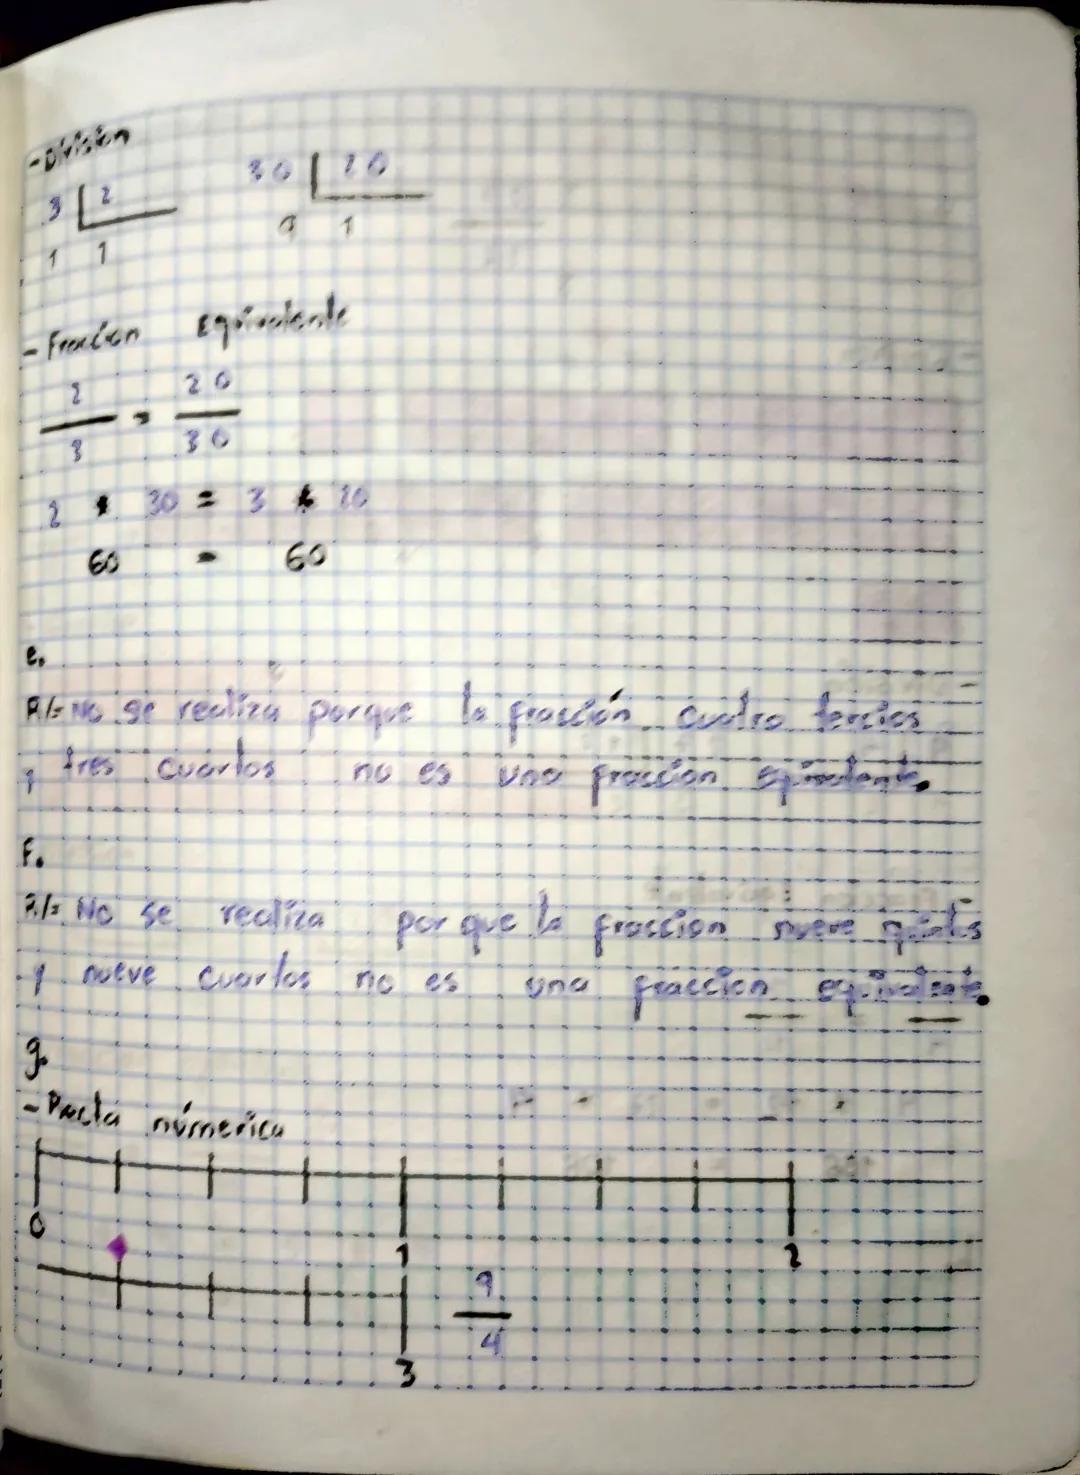 - División
3 2
1 1
30 20
9 1
- Fraccion Equivalente
2 = 20
3 30
2 * 30 = 3 * 20
60 = 60
e.
R/= No se realiza porque la fracción cuatro tercios
y tres cuartos no es una fraccion equivalente.
F.
R/= No se realiza porque la fraccion nueve quintos
y nueve cuartos no es una fraccion equivalente.
g.
- Recta númerica
0 1 2
9
4
3